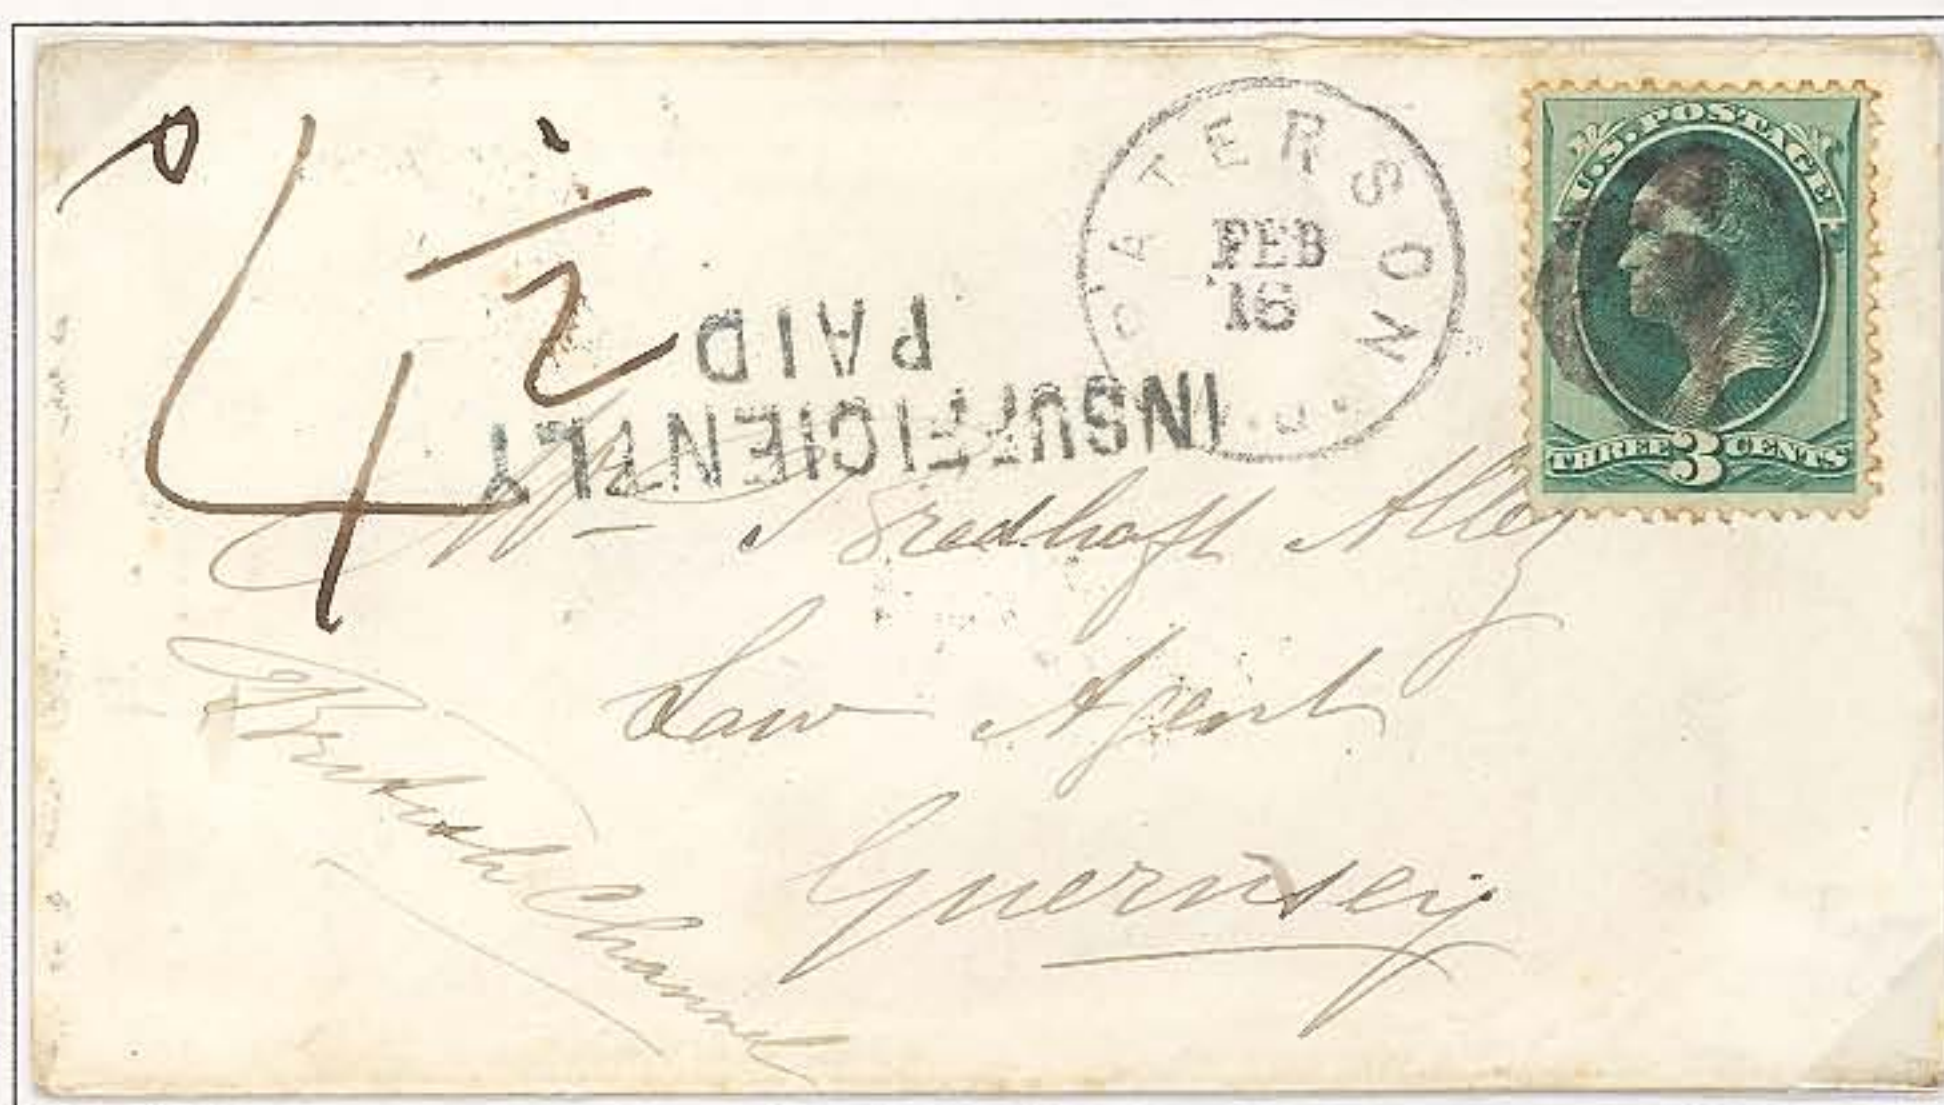 4 1/2
PATERSON
FEB
16
N.J.
U.S. POSTAGE
THREE 3 CENTS
INSUFFICIENTLY
PAID
Mr Bradhaft Alley
Law Agent
Guernsey
British Channel